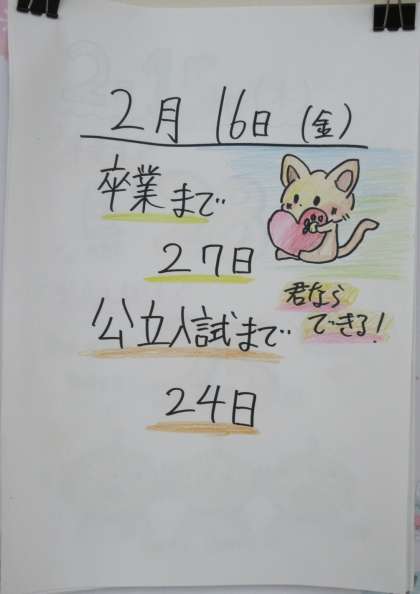 2月16日(金)
卒業まで
27日
君なら
できる!
公立入試まで
24日